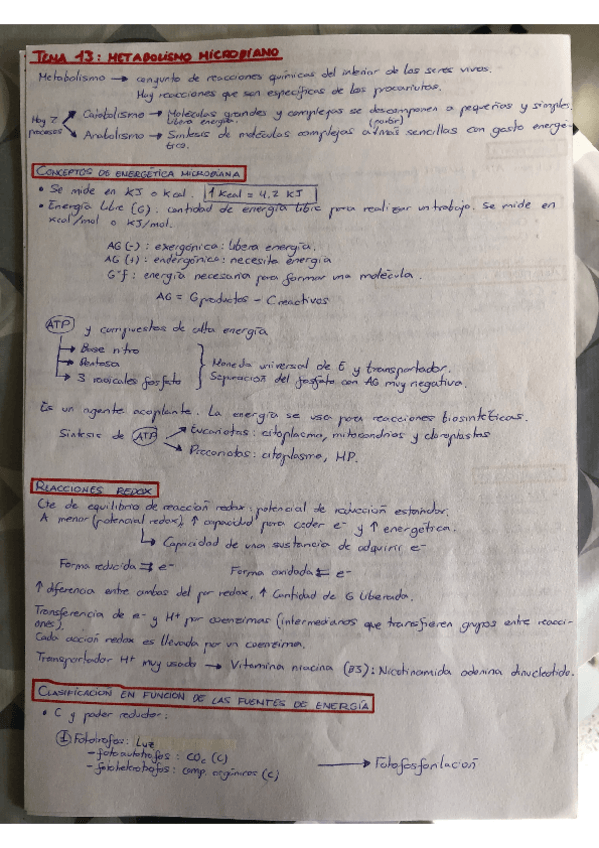 TEMA 13: METABOLISMO MICROBIANO
Metabolismo → conjunto de reacciones químicas del interior de los seres vivos.
Hay reacciones que son específicas de las procariotas.
Hay 2 procesos
Catabolismo → Moléculas grandes y complejas se descomponen a pequeñas y simples.
Libera energía.
Anabolismo → Síntesis de moléculas complejas a (partir) más sencillas con gasto energé-
tico.
CONCEPTOS DE ENERGÉTICA MICROBIANA
• Se mide en KJ o kcal. 1 Kcal = 4,2 KJ
• Energía libre (G). cantidad de energía libre para realizar un trabajo. Se mide en
kcal/mol o kJ/mol.
AG (-) : exergónica: libera energía.
AG (+) : endergónica: necesita energía
G°f : energía necesaria para formar una molécula.
AG = Gproductos - Greactivos
ATP y compuestos de alta energía
→ Base nitro
→ Pentosa
→ 3 radicales fosfato
Moneda universal de E y transportador.
Separación del fosfato con AG muy negativa.
Es un agente acoplante. La energía se usa para reacciones biosintéticas.
Síntesis de ATP
→ Eucariotas: citoplasma, mitocondrias y cloroplastos
→ Procariotas: citoplasma, MP.
REACCIONES REDOX
Cte de equilibrio de reacción redox: potencial de reducción estándar.
A menor (potencial redox), ↑ capacidad para ceder e- y ↑ energética.
↳ Capacidad de una sustancia de adquirir e-
Forma reducida ⇉ e- Forma oxidada ⇇ e-
↑ diferencia entre ambas del par redox, ↑ Cantidad de G liberada.
Transferencia de e- y H+ por coenzimas (intermediarios que transfieren grupos entre reacci-
ones).
Cada acción redox es llevada por un coenzima.
Transportador H+ muy usado → Vitamina niacina (B3): Nicotinamida adenina dinucleótido.
CLASIFICACIÓN EN FUNCIÓN DE LAS FUENTES DE ENERGÍA
• C y poder reductor:
① Fotótrofos: Luz
- fotoautótrofos : CO2 (C)
- fotoheterótrofos : comp. orgánicos (C)
→ Fotofosforilación